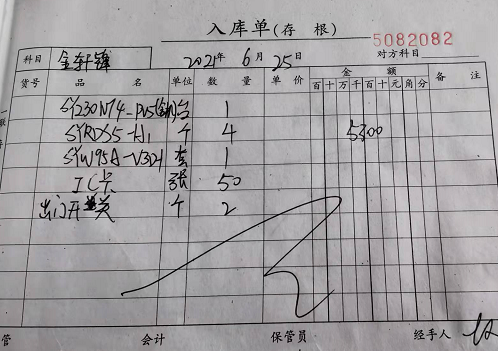 入库单(存 根)
5082082
科目 金轩鏵 2021年 6月 25日 对方科目
货号 品 名 单位 数 量 单 价 金 额 备 注
百 十 万 千 百 十 元 角 分
台 1
SYRDS5-H1 个 4 5300
SYW95A-V3DH 套 1
IC卡 张 50
出门开关 个 2
管 会计 保管员 经手人